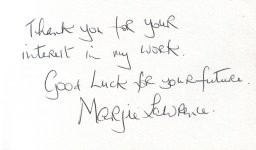 Thank you for your
interest in my work.
Good Luck for your future.
Margie Lawrence.